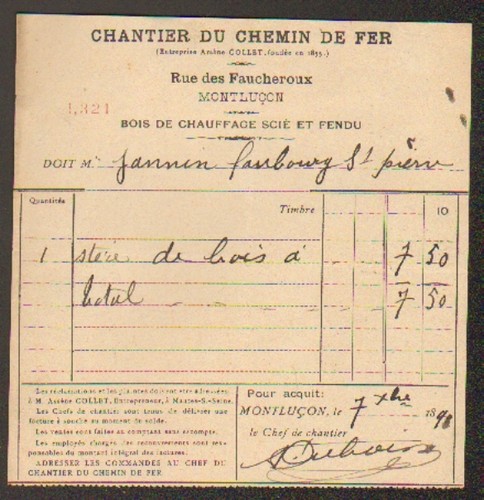 CHANTIER DU CHEMIN DE FER
(Entreprise Arsène COLLET, fondée en 1855.)
Rue des Faucheroux
MONTLUÇON
1,321
BOIS DE CHAUFFAGE SCIÉ ET FENDU
DOIT M. Jannin faubourg St pierre
Quantités
Timbre 10
1 stère de bois à 7 50
total 7 50
Les réclamations et les plaintes doivent être adressées
à M. Arsène COLLET, Entrepreneur, à Mantes-S.-Seine.
Les Chefs de chantier sont tenus de délivrer une
facture à souche au moment de solde.
Les ventes sont faites au comptant sans escompte.
Les employés chargés des recouvrements sont res-
ponsables du montant intégral des factures.
ADRESSEZ LES COMMANDES AU CHEF DU
CHANTIER DU CHEMIN DE FER.
Pour acquit:
MONTLUÇON, le 7 xbre 189
le Chef de chantier